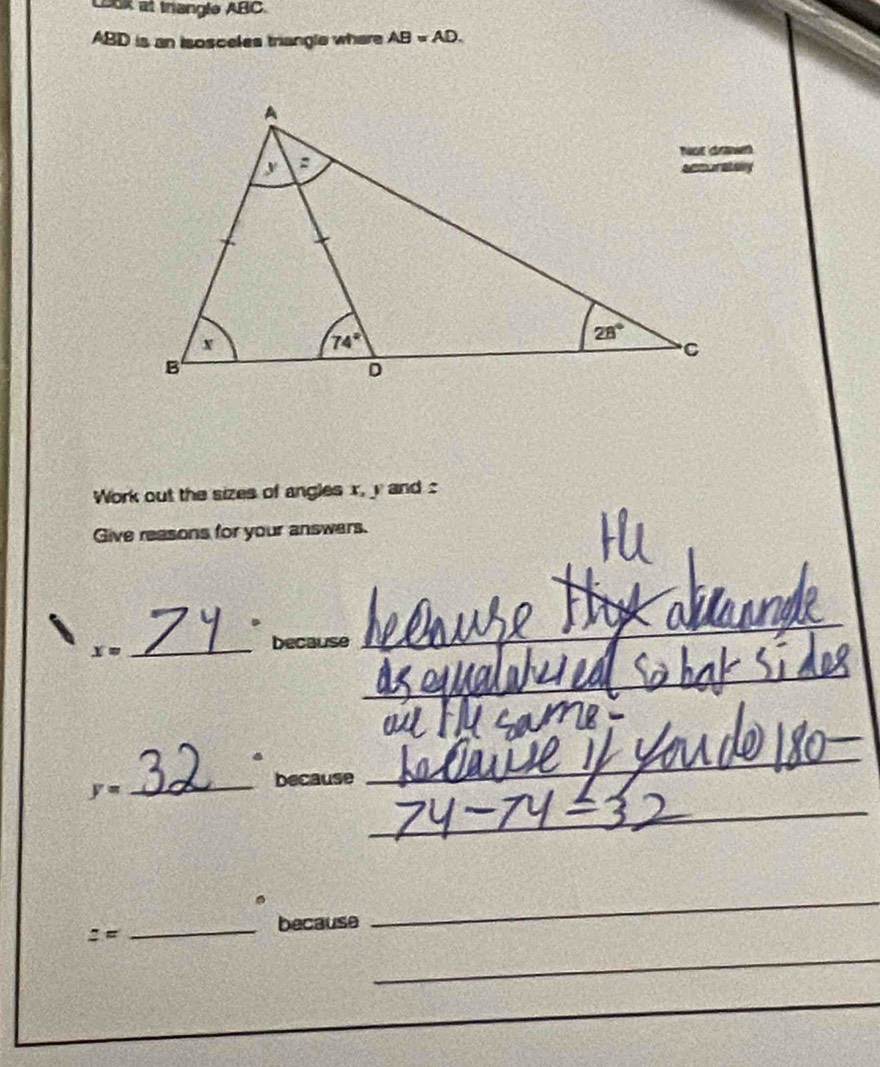 Look at triangle ABC.
ABD is an isosceles triangle where AB = AD.
A
Not drawn
accurately
y z
x
74°
28°
B
D
C
Work out the sizes of angles x, y and z
Give reasons for your answers.
x = 74 ° because because the
sides
all the same-
y = 32 ° because because if you do 180-
74-74=32
z = ° because